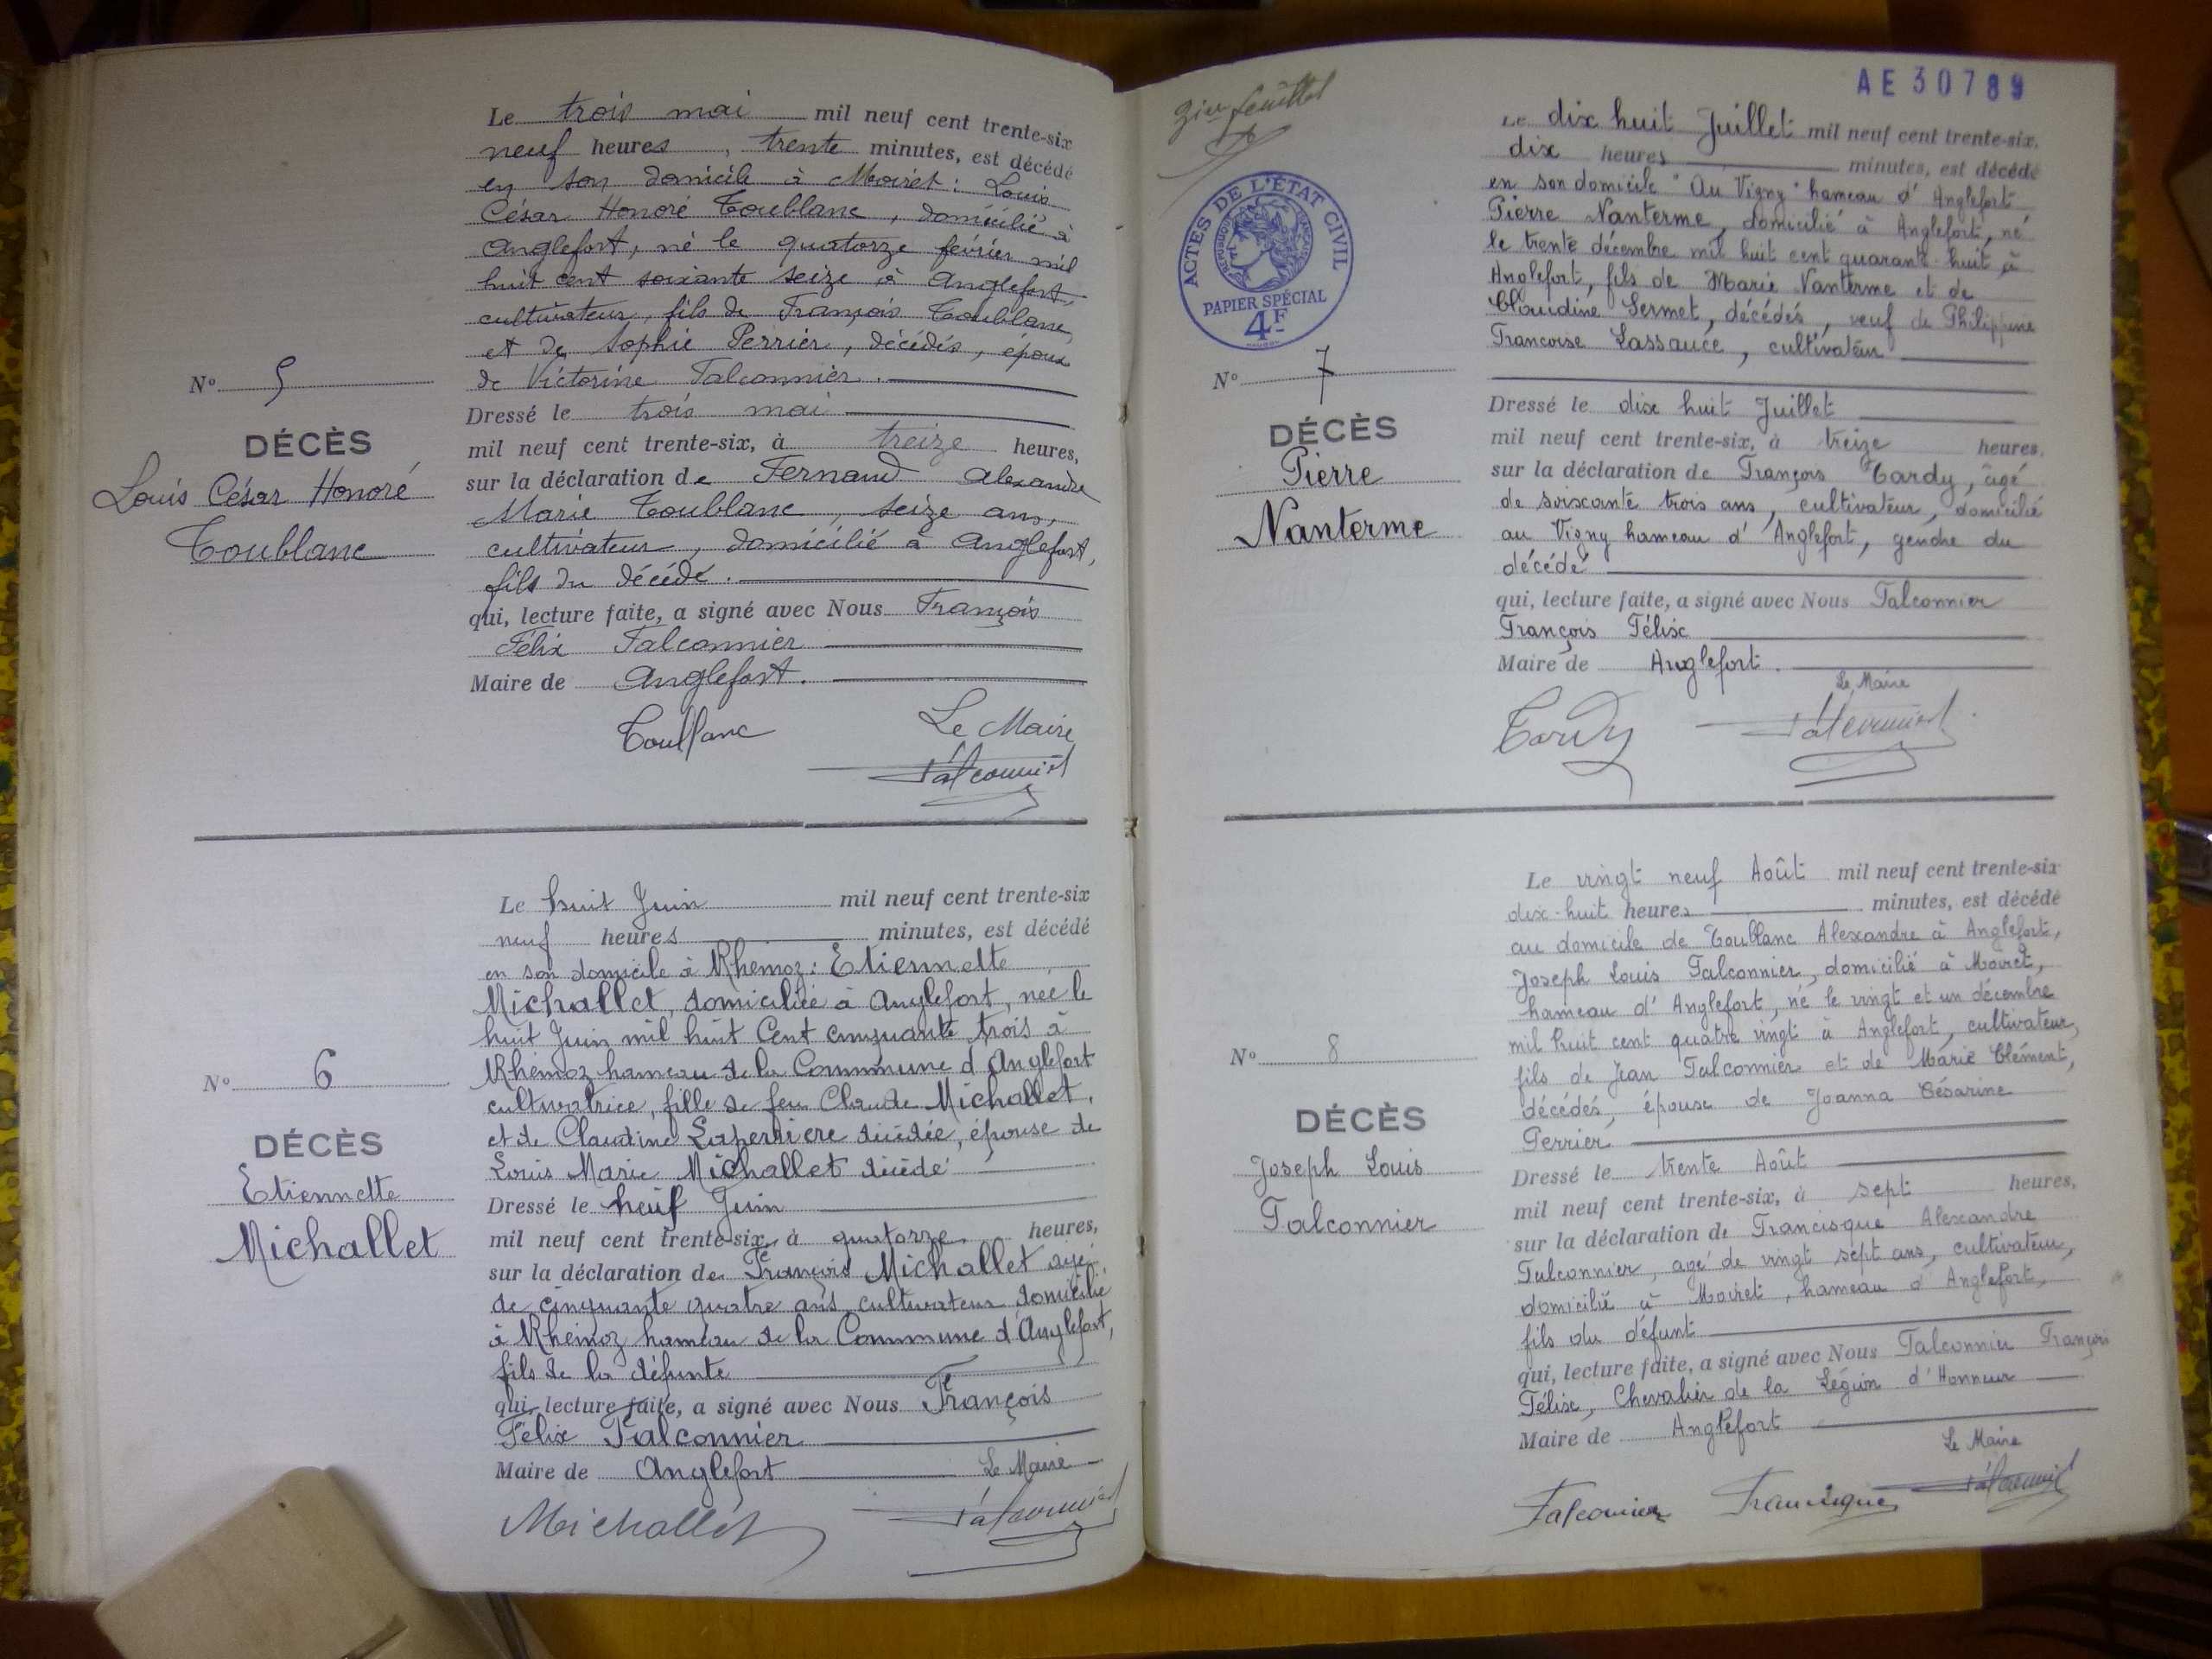 Le trois mai mil neuf cent trente-six
neuf heures, trente minutes, est décédé
en son domicile à Moiret : Louis
César Honoré Toublanc, domicilié à
Anglefort, né le quatorze février mil
huit cent soixante seize à Anglefort,
cultivateur, fils de François Toublanc,
et de Sophie Perrier, décédés, époux
de Victorine Falconnier.
Dressé le trois mai
mil neuf cent trente-six, à treize heures,
sur la déclaration de Fernand Alexandre
Marie Toublanc, seize ans,
cultivateur, domicilié à Anglefort,
fils du décédé.
qui, lecture faite, a signé avec Nous François
Félix Falconnier
Maire de Anglefort.
Toublanc Le Maire
Falconnier
N° 5
DÉCÈS
Louis César Honoré
Toublanc
Le huit Juin mil neuf cent trente-six
neuf heures minutes, est décédé
en son domicile à Rhémoz : Etiennette
Michallet, domiciliée à Anglefort, née le
huit Juin mil huit Cent cinquante trois à
Rhémoz hameau de la Commune d'Anglefort
cultivatrice, fille de feu Claude Michallet,
et de Claudine Laperriere décédée, épouse de
Louis Marie Michallet décédé
Dressé le neuf Juin
mil neuf cent trente-six, à quatorze heures,
sur la déclaration de François Michallet agé
de cinquante quatre ans cultivateur domicilié
à Rhémoz hameau de la Commune d'Anglefort,
fils de la défunte
qui, lecture faite, a signé avec Nous François
Félix Falconnier
Maire de Anglefort Le Maire
Michallet Falconnier
N° 6
DÉCÈS
Etiennette
Michallet
AE 30789
feuillet
ACTES DE L'ÉTAT CIVIL
RÉPUBLIQUE FRANÇAISE
PAPIER SPÉCIAL
4F
Le dix huit Juillet mil neuf cent trente-six,
dix heures minutes, est décédé
en son domicile "Au Vigny" hameau d'Anglefort
Pierre Nanterme, domicilié à Anglefort, né
le trente décembre mil huit cent quarante-huit à
Anglefort, fils de Marie Nanterme et de
Claudine Sermet, décédés, veuf de Philippine
Francoise Lassauce, cultivateur
Dressé le dix huit Juillet
mil neuf cent trente-six, à treize heures,
sur la déclaration de François Tardy, âgé
de soixante trois ans, cultivateur, domicilié
au Vigny hameau d'Anglefort, gendre du
décédé
qui, lecture faite, a signé avec Nous Falconnier
François Félix
Maire de Anglefort.
Le Maire
Tardy Falconnier
N° 7
DÉCÈS
Pierre
Nanterme
Le vingt neuf Août mil neuf cent trente-six
dix-huit heures minutes, est décédé
au domicile de Toublanc Alexandre à Anglefort,
Joseph Louis Falconnier, domicilié à Moiret,
hameau d'Anglefort, né le vingt et un décembre
mil huit cent quatre vingt à Anglefort, cultivateur,
fils de Jean Falconnier et de Marie Clément,
décédés, épouse de Joanna Césarine
Perrier
Dressé le trente Août
mil neuf cent trente-six, à sept heures,
sur la déclaration de Francisque Alexandre
Falconnier, agé de vingt sept ans, cultivateur,
domicilié à Moiret, hameau d'Anglefort,
fils du défunt
qui, lecture faite, a signé avec Nous Falconnier François
Félix, Chevalier de la Légion d'Honneur
Maire de Anglefort
Le Maire
Falconnier Francisque Falconnier
N° 8
DÉCÈS
Joseph Louis
Falconnier